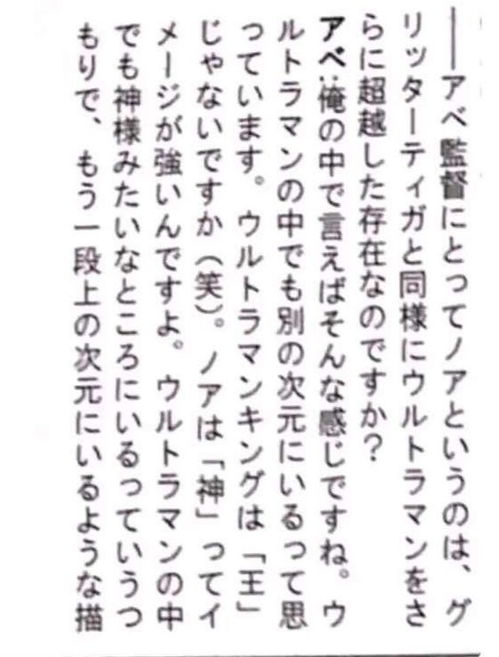 ――アベ監督にとってノアというのは、グ
リッターティガと同様にウルトラマンをさ
らに超越した存在なのですか？
アベ：俺の中で言えばそんな感じですね。ウ
ルトラマンの中でも別の次元にいるって思
っています。ウルトラマンキングは「王」
じゃないですか（笑）。ノアは「神」ってイ
メージが強いんですよ。ウルトラマンの中
でも神様みたいなところにいるっていうつ
もりで、もう一段上の次元にいるような描